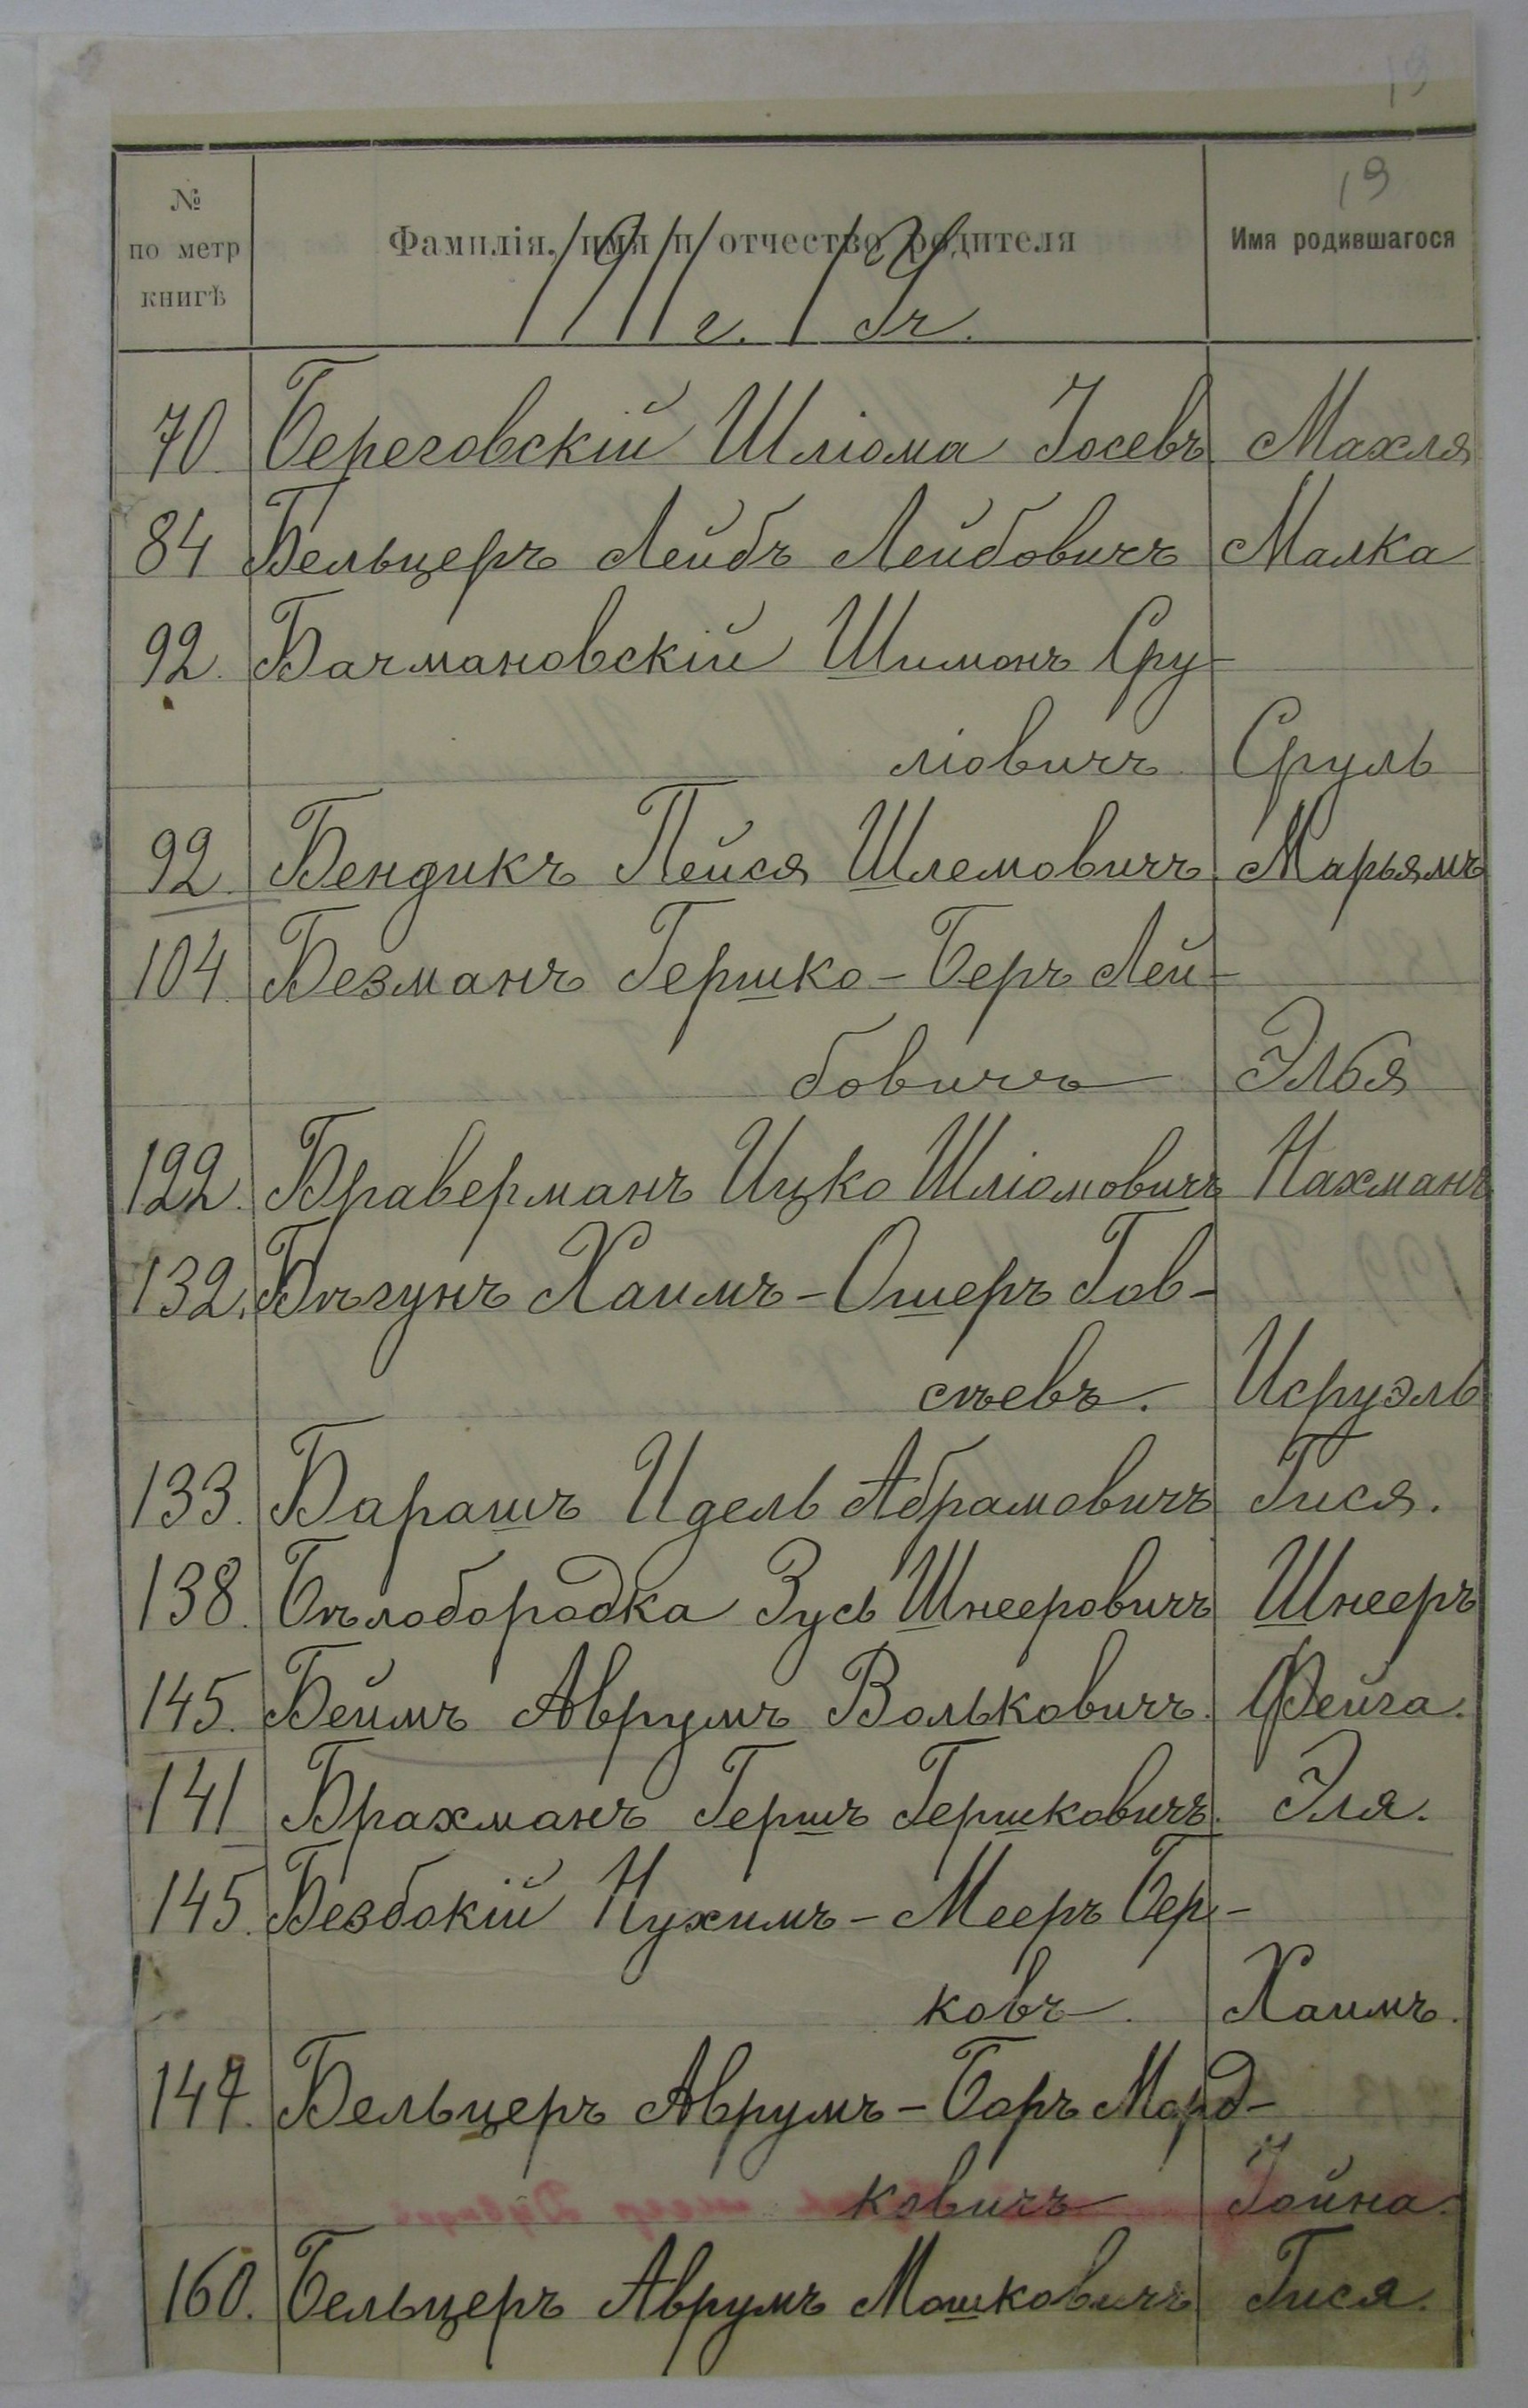 19
19
№ по метр книгѣ
Фамилія, имя и отчество родителя
Имя родившагося
70. Береговскій Шліома Іосевъ. Махля
84 Бельцеръ Лейбъ Лейбовичъ Малка
92. Бачмановскій Шимонъ Сру-
ліовичъ. Сруль
92. Бендикъ Пейся Шлемовичъ. Марьямъ
104. Безманъ Гершко-Беръ Лей-
бовичъ Элья
122. Браверманъ Ицко Шліомовичъ Нахманъ
132. Бѣгунъ Хаимъ-Ошеръ Гов-
сѣевъ. Исруэль
133. Барашъ Идель Абрамовичъ Гися.
138. Бѣлобородка Зусь Шнееровичъ Шнееръ
145. Беимъ Аврумъ Вольковичъ. Фейга.
141 Брахманъ Гершъ Гершковичъ. Эля.
145. Безбокій Нухимъ-Мееръ Бер-
ковъ. Хаимъ.
147. Бельцеръ Аврумъ-Боръ Морд-
ковичъ Іойна.
160. Бельцеръ Аврумъ Мошковичъ Гися.